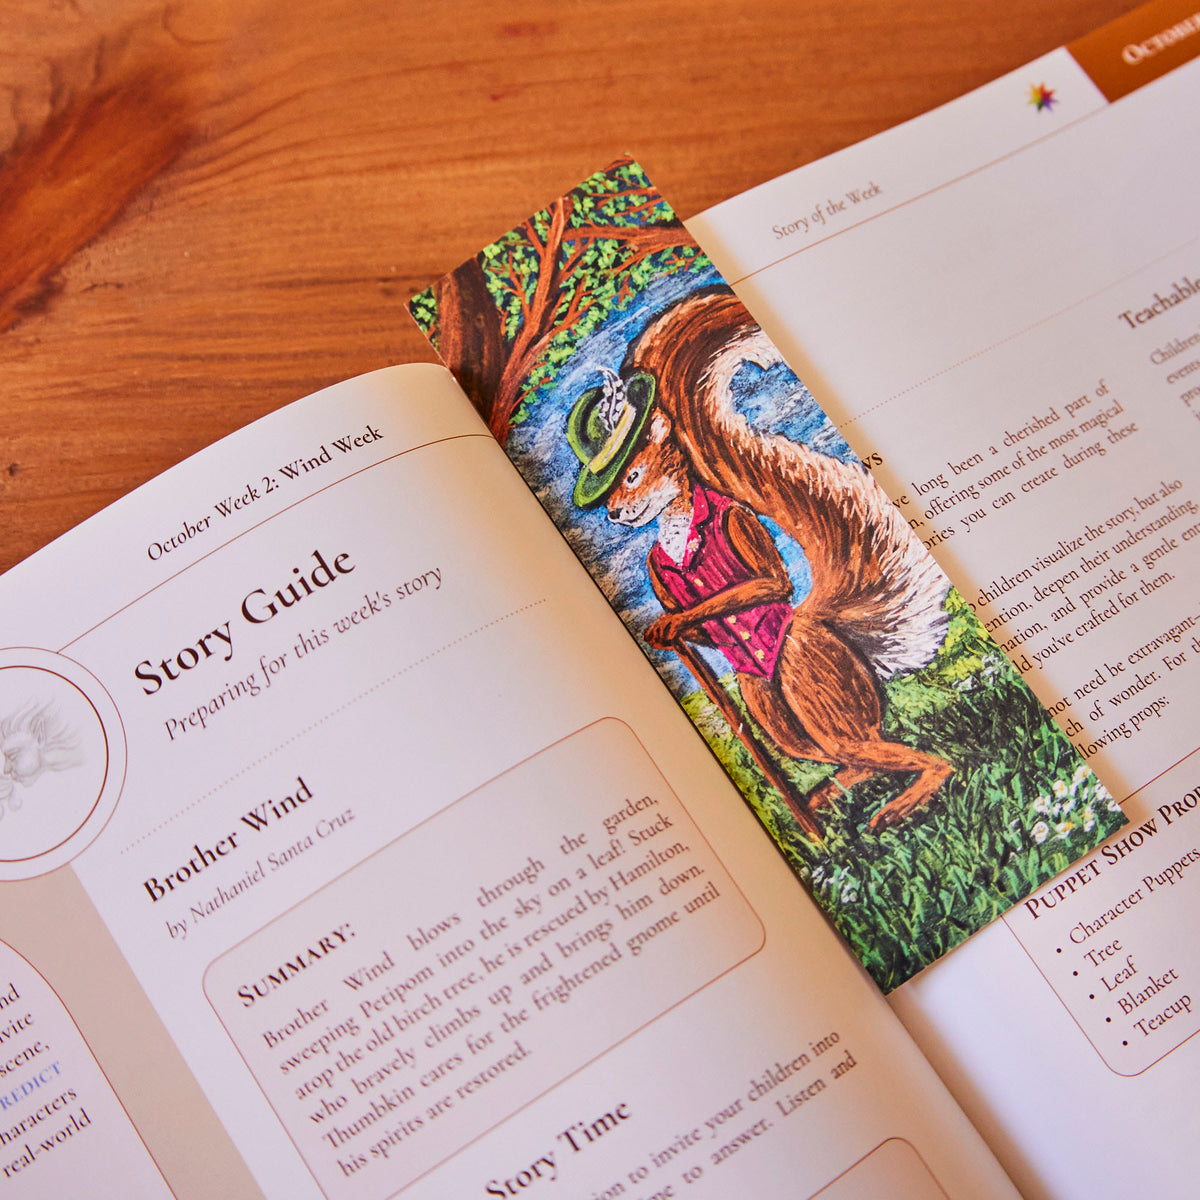 October Week 2: Wind Week
Story Guide
Preparing for this week's story
Brother Wind
by Nathaniel Santa Cruz
SUMMARY:
Brother Wind blows through the garden,
sweeping Petipom into the sky on a leaf! Stuck
atop the old birch tree, he is rescued by Hamilton,
who bravely climbs up and brings him down.
Thumbkin cares for the frightened gnome until
his spirits are restored.
Story Time
to invite your children into
to answer. Listen and
scene,
real-world
Story of the Week
long been a cherished part of
offering some of the most magical
you can create during these
children visualize the story, but also
deepen their understanding
and provide a gentle
you've crafted for them.
not need be extravagance
of wonder. For
props:
PUPPET SHOW
• Character Puppets
• Tree
• Leaf
• Blanket
• Teacup
Children